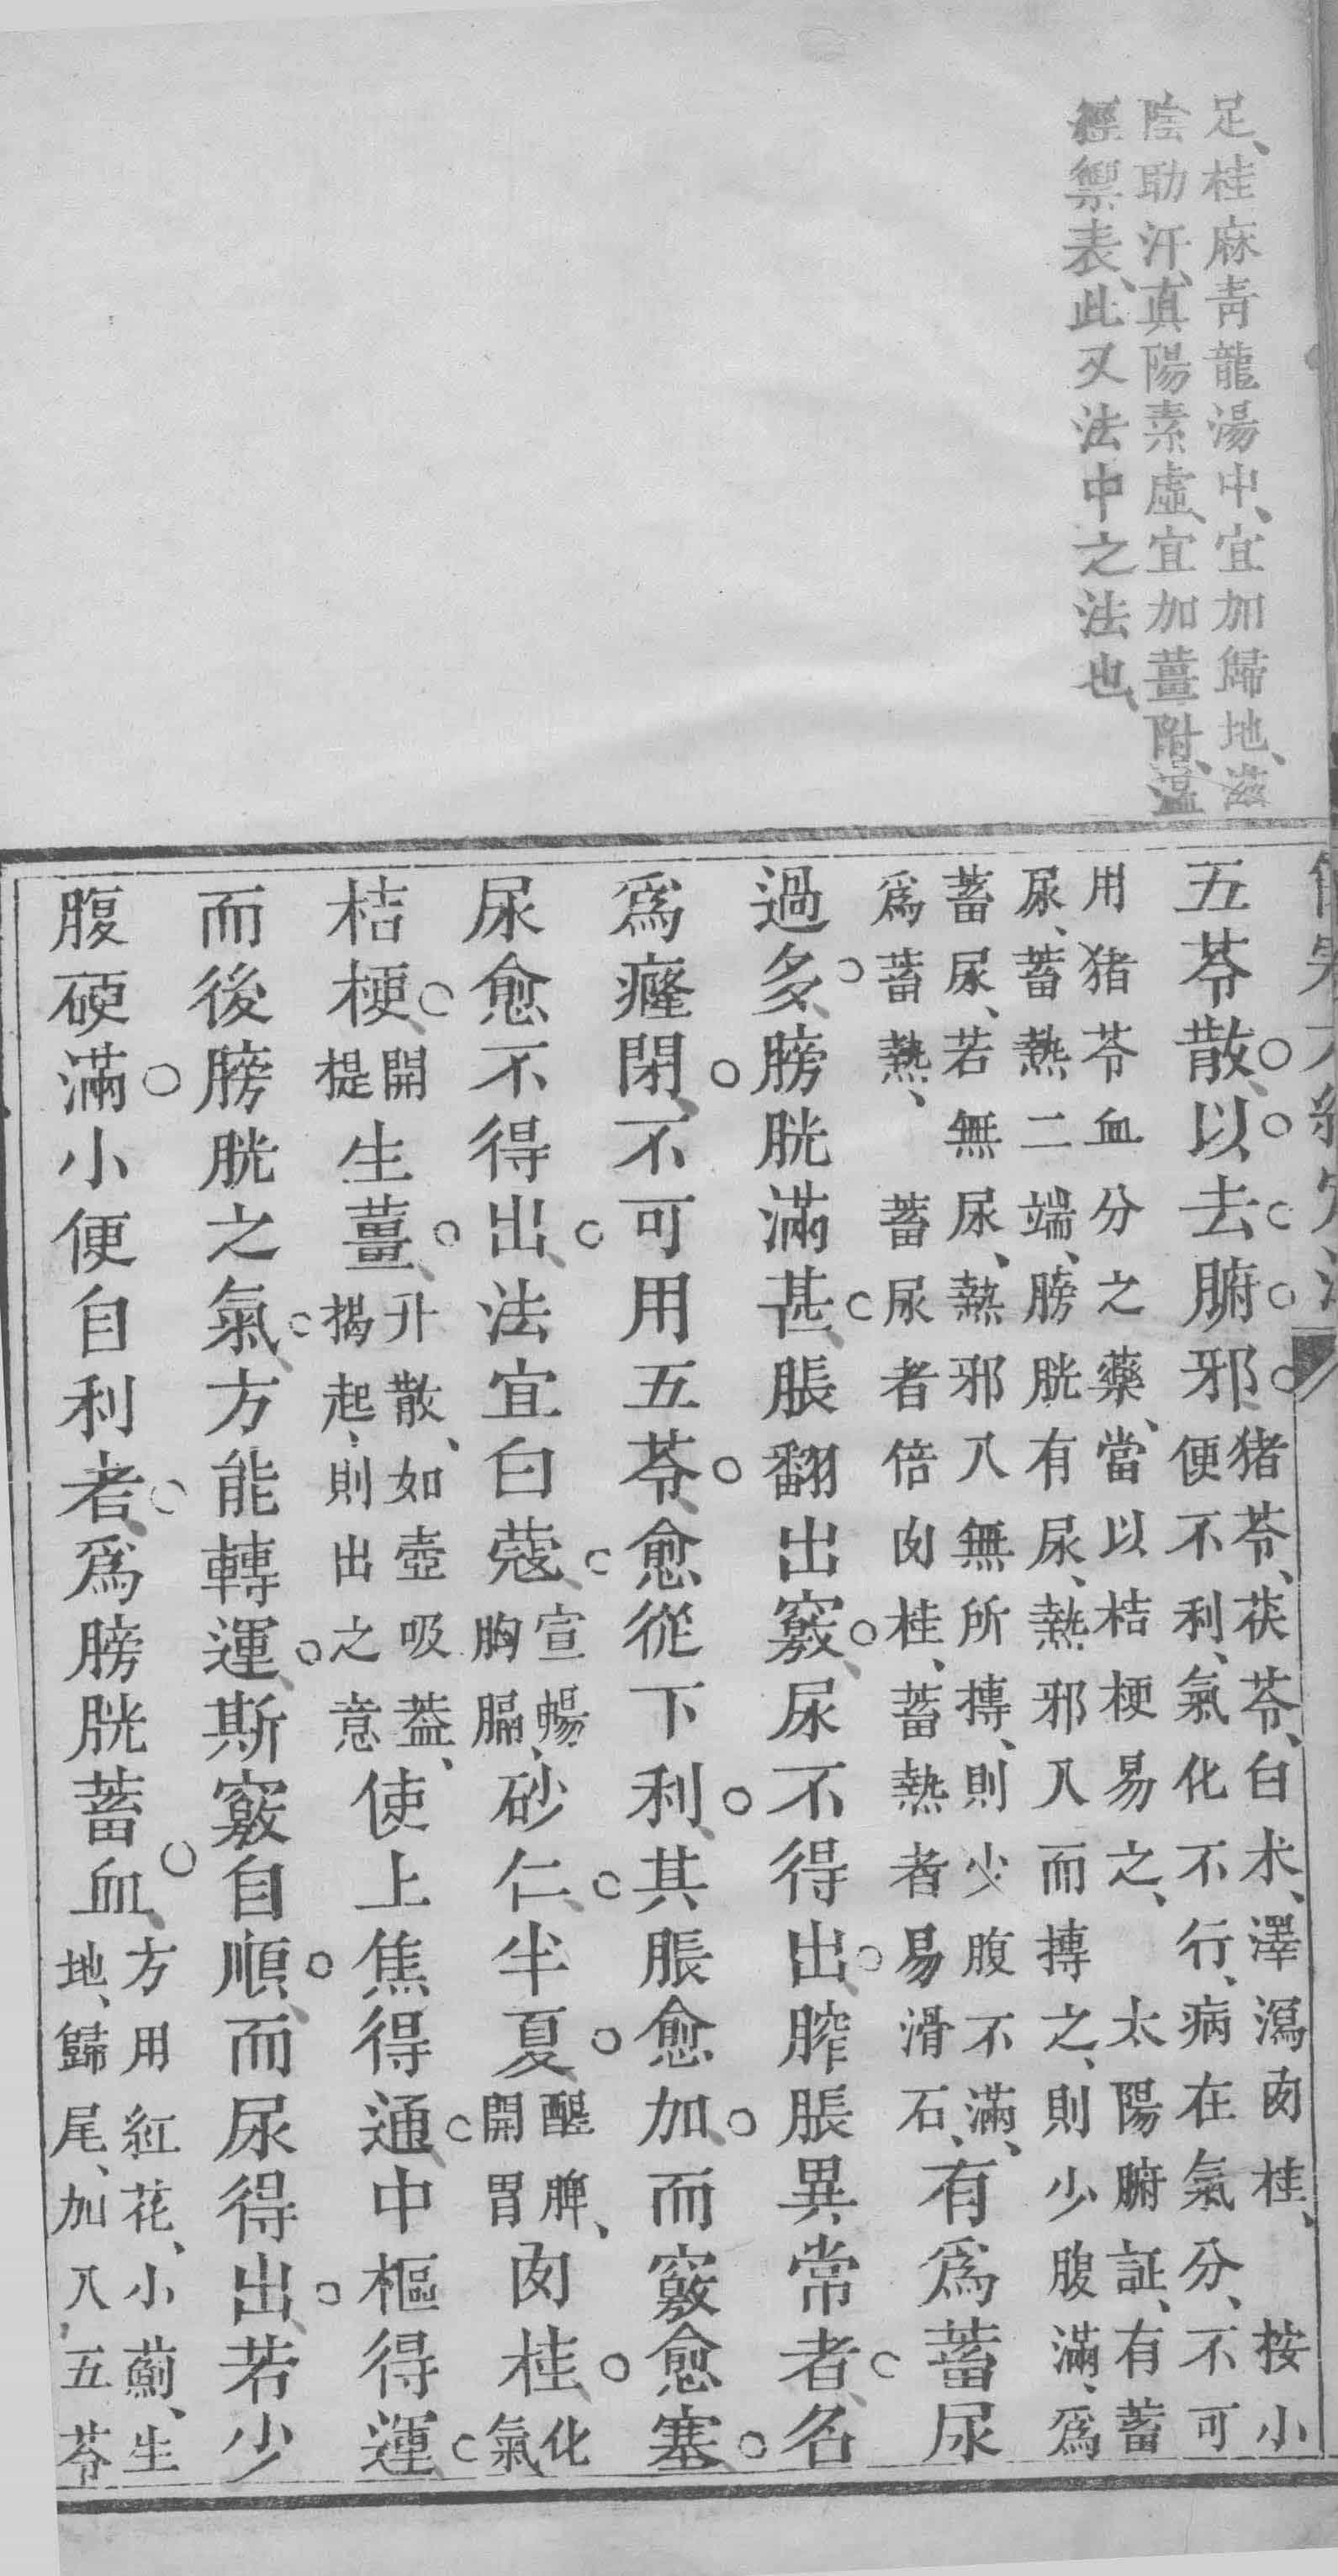 足、桂麻青龍湯中、宜加歸地、滋
陰助汗、真陽素虛、宜加薑附、溫
經禦表、此又法中之法也、
五苓散、以去腑邪、猪苓、茯苓、白朮、澤瀉、肉桂、　按小
便不利、氣化不行、病在氣分、不可
用猪苓血分之藥、當以桔梗易之、　太陽腑証、有蓄
尿、蓄熱二端、膀胱有尿、熱邪入而搏之、則少腹滿、為
蓄尿、若無尿、熱邪入無所搏、則少腹不滿、
為蓄熱、　蓄尿者倍肉桂、蓄熱者易滑石、
有為蓄尿
過多、膀胱滿甚、脹翻出竅、尿不得出、膪脹異常者、名
為癃閉、不可用五苓、愈從下利、其脹愈加、而竅愈塞、
尿愈不得出、法宜白蔻、宣暢胸膈、砂仁、半夏、醒脾、開胃肉桂、化氣
桔梗、開提生薑、升散、如壺吸蓋、揭起、則出之意使上焦得通、中樞得運、
而後膀胱之氣、方能轉運、斯竅自順、而尿得出、若少
腹硬滿小便自利者、為膀胱蓄血、方用紅花、小薊、生
地、歸尾、加入五苓